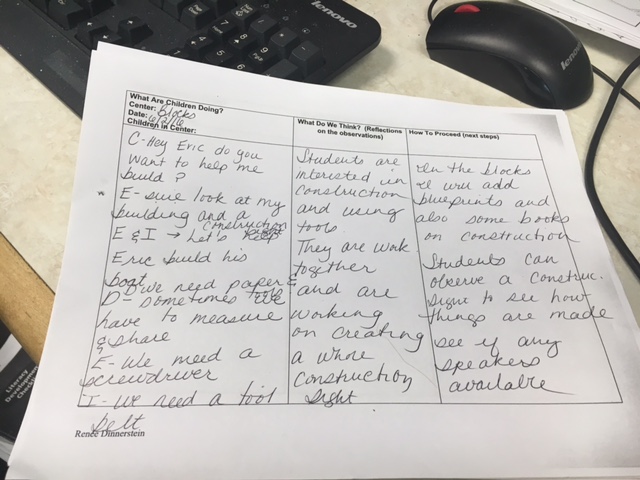 lenovo
lenovo
What Are Children Doing?
Center: Blocks
Date: 6/2/16
Children in Center:
C-Hey Eric do you
want to help me
build?
E- sure look at my
building and a
construction
E & I → Let's
Eric build his
boat
D- we need paper &
sometimes we
have to measure
& share
E- We need a
screwdriver
I- We need a tool
belt
What Do We Think? (Reflections
on the observations)
Students are
interested in
construction
and using
tools
They are work
together
and are
working
on creating
a whole
construction
sight
How To Proceed (next steps)
In the blocks
I will add
blueprints and
also some books
on construction
Students can
observe a construc.
sight to see how
things are made
see if any
speakers
available
Renee Dinnerstein
Literacy
Development
Checkli